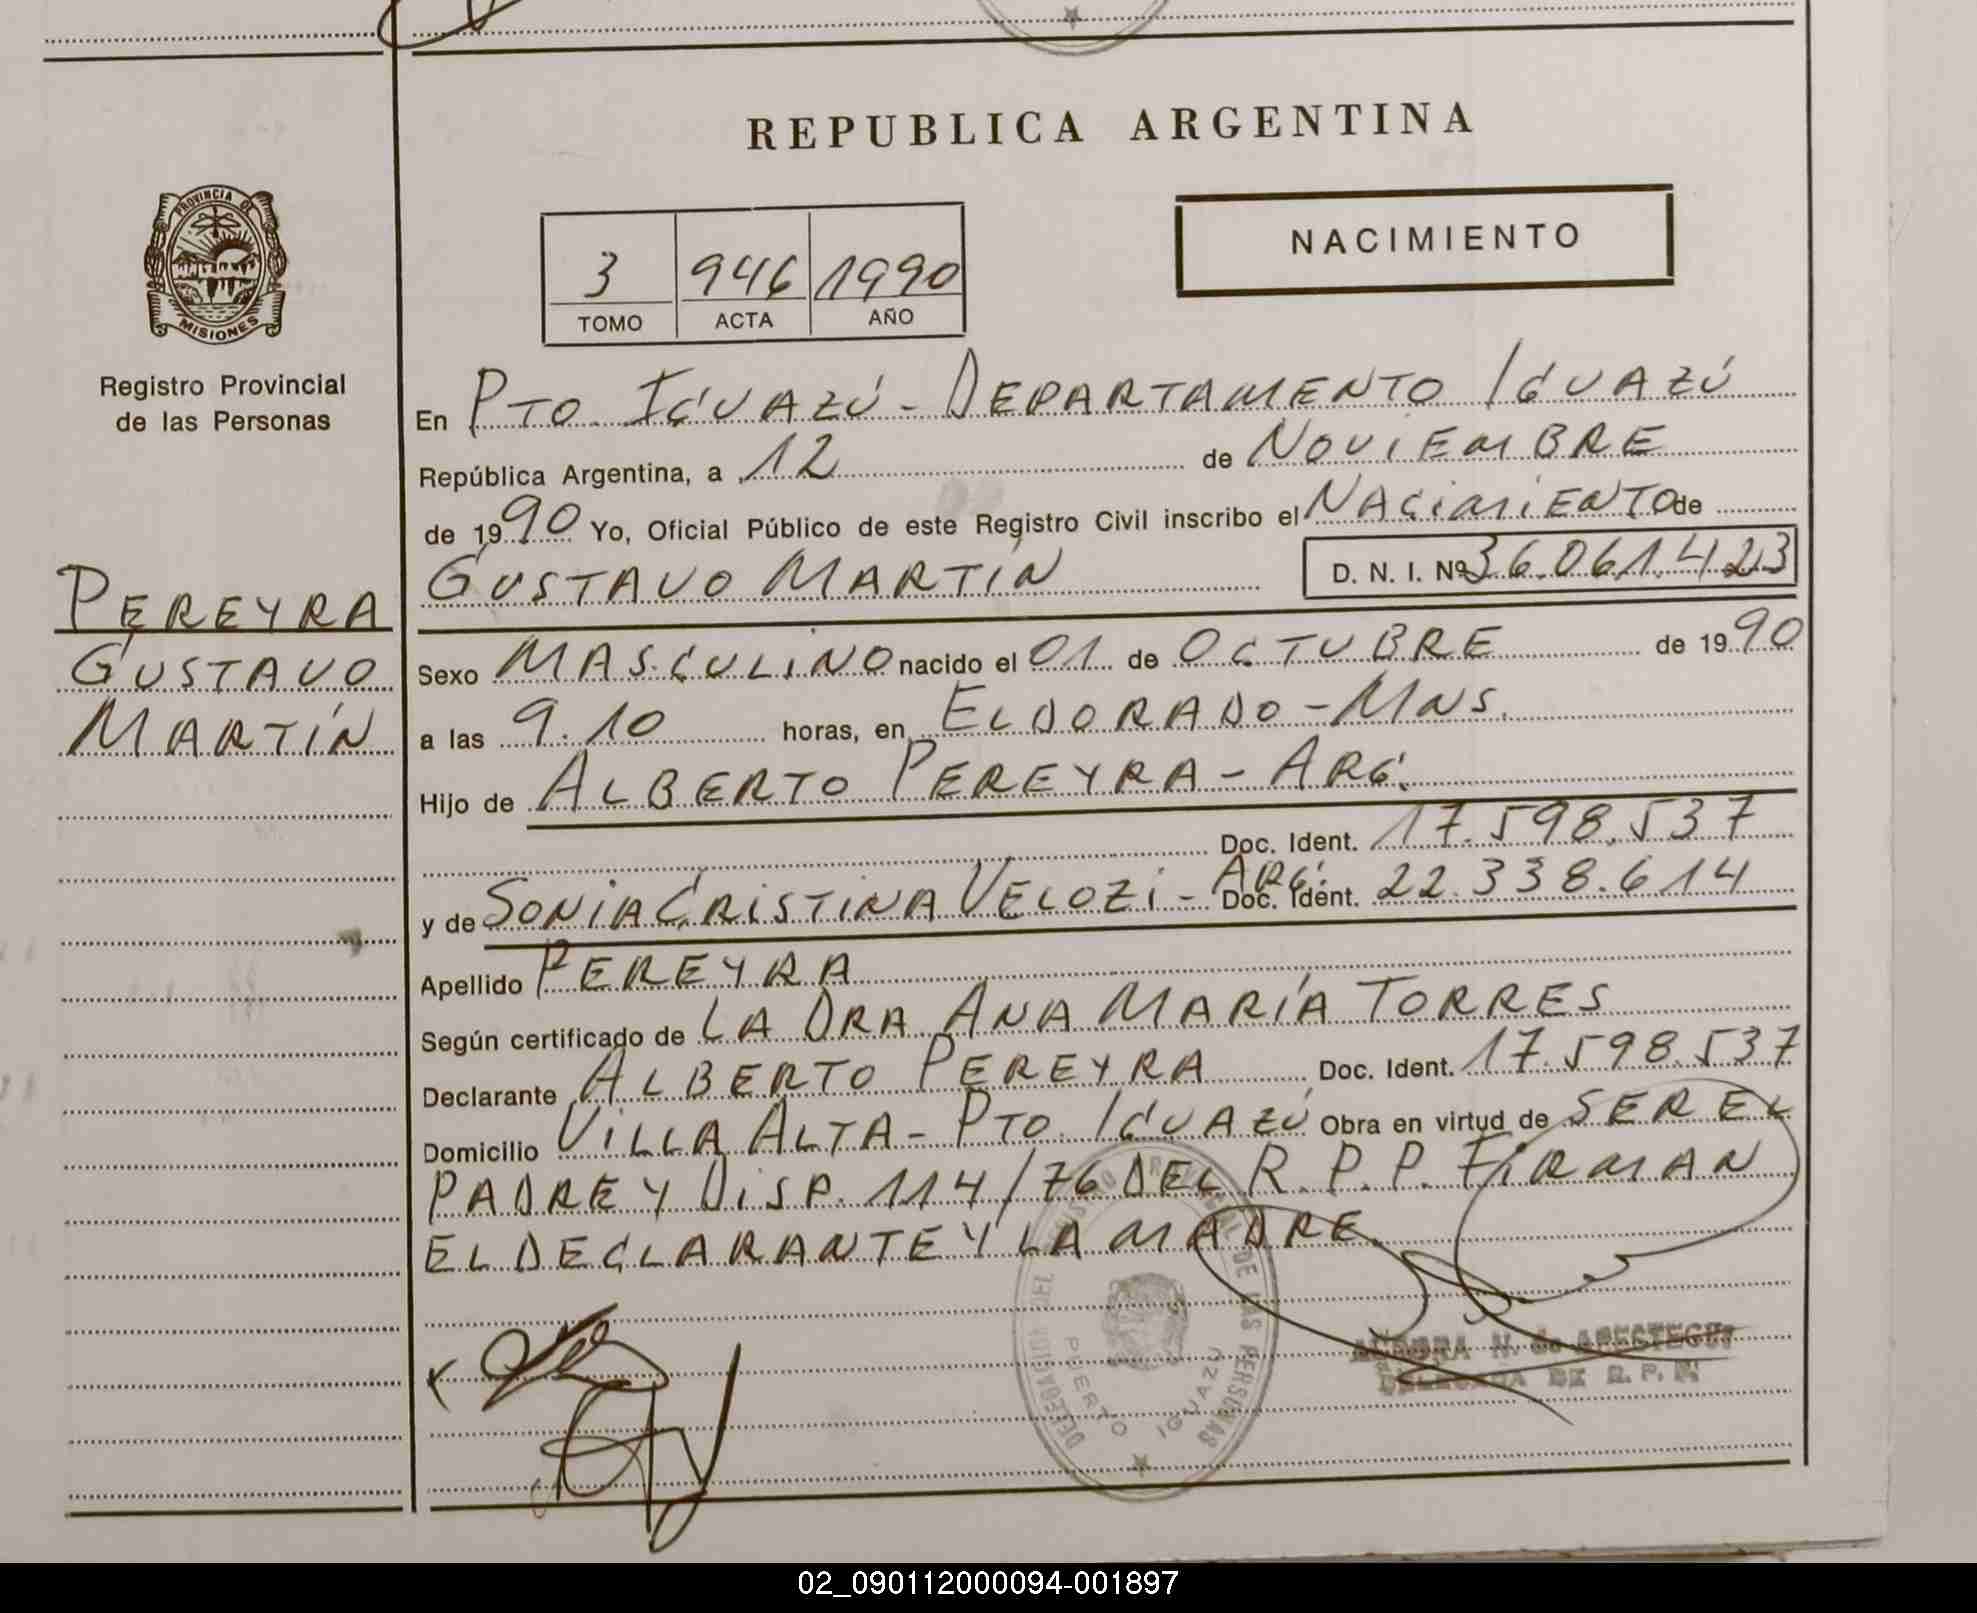 REPUBLICA ARGENTINA
PROVINCIA DE
MISIONES
Registro Provincial
de las Personas
NACIMIENTO
3 946 1990
TOMO ACTA AÑO
PEREYRA
GUSTAVO
MARTÍN
En PTO. IGUAZÚ - DEPARTAMENTO IGUAZÚ
República Argentina, a 12 de NOVIEMBRE
de 1990 Yo, Oficial Público de este Registro Civil inscribo el NACIMIENTO de
GUSTAVO MARTÍN D. N. I. Nº 36.061.423
Sexo MASCULINO nacido el 01 de OCTUBRE de 1990
a las 9.10 horas, en ELDORADO - MNS.
Hijo de ALBERTO PEREYRA - ARG.
Doc. Ident. 17.598.537
y de SONIA CRISTINA VELOZI - ARG. Doc. Ident. 22.338.614
Apellido PEREYRA
Según certificado de LA DRA ANA MARÍA TORRES
Declarante ALBERTO PEREYRA Doc. Ident. 17.598.537
Domicilio VILLA ALTA - PTO. IGUAZÚ Obra en virtud de SER EL
PADRE Y DISP. 114/76 DEL R.P.P. FIRMAN
EL DECLARANTE Y LA MADRE.
DELEGACION DEL REGISTRO PROVINCIAL DE LAS PERSONAS
PUERTO IGUAZU
N. de ARESTEGUI
DELEGADA DE R. P. P.
02_090112000094-001897